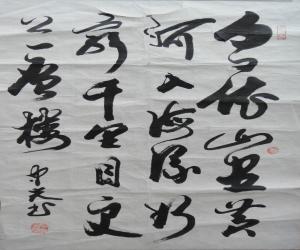 白日依山尽黄
河入海流欲
穷千里目更
上一层楼